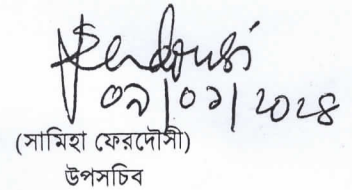 ০৯|০১|২০২৪
(সামিহা ফেরদৌসী)
উপসচিব